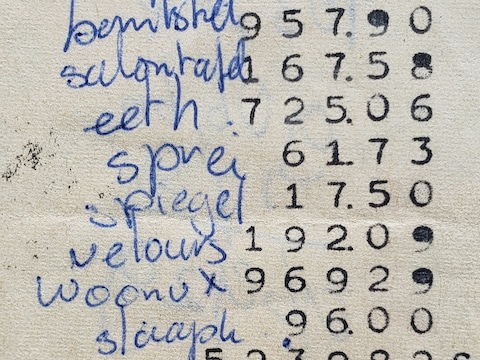 bankstel 957.90
salontafel 167.58
eeth. 725.06
sprei 61.73
spiegel 17.50
velours 192.09
woonv x 96929
slaapk 96.00